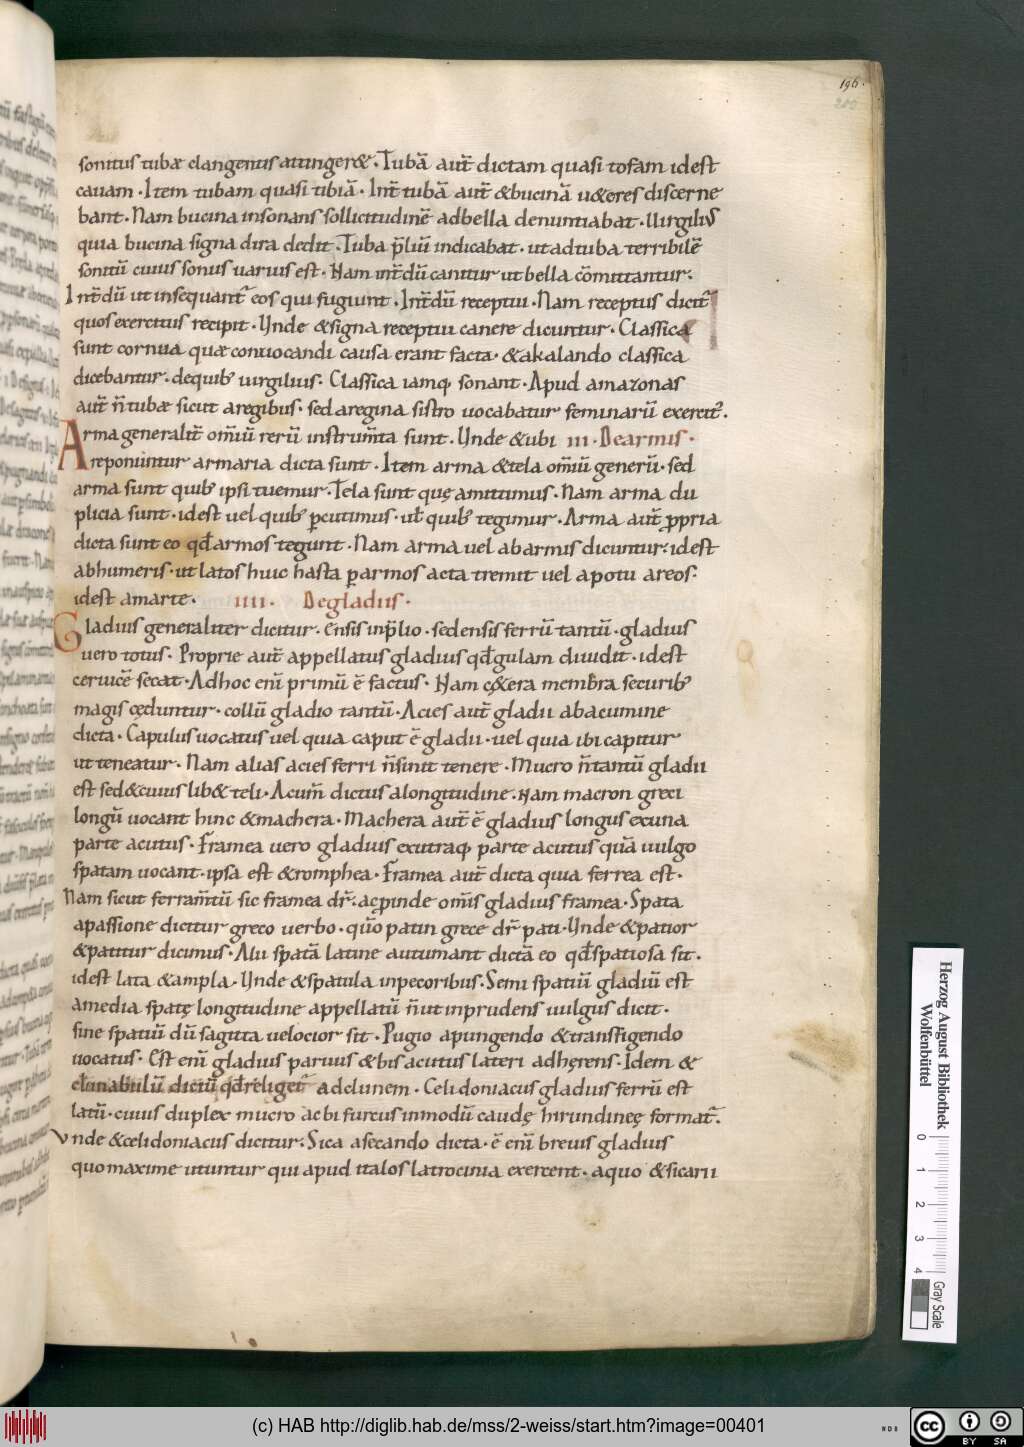 196.
sonitus tubæ clangentis attinger&. Tubā aut̄ dictam quasi tofam idest
cavam. Item tubam quasi tibiā. Int̄ tubā aut̄ & bucinā u&eres discerne
bant. Nam bucina insonans sollicitudinē ad bella denuntiabat. Uirgilius
quia bucina signa dira dedit. Tuba p̄liū indicabat. ut ad tuba terribilē
sonitū cuius sonus uarius est. Nam int̄dū canitur ut bella cōmittantur.
Int̄dū ut insequant̄ eos qui fugiunt. Int̄dū receptui. Nam receptus dicit̄
quos exercitus recipit. Unde & signa receptui canere dicuntur. Classica
sunt cornua quæ conuocandi causa erant facta. & akalando classica
dicebantur. de quib; uirgilius. Classica iamq; sonant. Apud amazonas
aut̄ n̄ tubæ sicut a regibus. sed a regina sistro uocabatur feminarū exercit;.
Arma generalit̄ om̄iū rerū instrum̄ta sunt. Unde & ubi III. De armis.
reponuntur armaria dicta sunt. Item arma & tela om̄iū generū. sed
arma sunt quib; ipsi tuemur. Tela sunt quę amittimus. Nam arma du
plicia sunt. idest uel quib; ꝑcutimus. ut̄ quib; tegimur. Arma aut̄ ꝓpria
dicta sunt eo qđ armos tegunt. Nam arma uel ab armis dicuntur. idest
ab humeris. ut latos huic hasta ꝑ armos acta tremit uel apotu areos.
idest a marte. IIII. De gladiis.
Gladius generaliter dicitur. Ensis in p̄lio. sed ensis ferrū tantū. gladius
uero totus. Proprie aut̄ appellatus gladius qđ gulam diuidit. idest
ceruicē secat. Ad hoc enī primū ē factus. Nam c&era membra securib;
magis cęduntur. collū gladio tantū. Acies aut̄ gladii ab acumine
dicta. Capulus uocatus uel quia caput ē gladii. uel quia ibi capitur
ut teneatur. Nam alias acies ferri n̄ sinit tenere. Mucro n̄ tantū gladii
est sed & cuius lib& teli. Acum̄ dictus a longitudine. Nam macron greci
longū uocant hinc & machera. Machera aut̄ ē gladius longus ex una
parte acutus. Framea uero gladius ex utraq; parte acutus quā uulgo
spatam uocant. ipsa est & romphea. Framea aut̄ dicta quia ferrea est.
Nam sicut ferram̄tū sic framea dr̄. ac ꝑinde om̄is gladius framea. Spata
a passione dicitur greco uerbo. quō patin grece dr̄ pati. Unde & patior
& patitur dicimus. Alii spatā latine autumant dictā eo qđ spatiosa sit.
idest lata & ampla. Unde & spatula in pecoribus. Semi spatiū gladiū est
a media spatę longitudine appellatū n̄ ut inprudens uulgus dicit.
sine spatiū dū sagitta uelocior sit. Pugio a pungendo & transfigendo
uocatus. Est enī gladius paruus & bis acutus lateri adhęrens. Idem &
clunabulū dictū qđ religet̄ ad clunem. Celidoniacus gladius ferrū est
latū. cuius duplex mucro ac bifurcus in modū caudę hirundineę format̄.
Vnde & celidoniacus dicitur. Sica a secando dicta. ē enī breuis gladius
quo maxime utuntur qui apud italos latrocinia exercent. a quo & sicarii
Herzog August Bibliothek
Wolfenbüttel
0 1 2 3 4
Gray Scale
(c) HAB http://diglib.hab.de/mss/2-weiss/start.htm?image=00401
NDB
cc BY SA